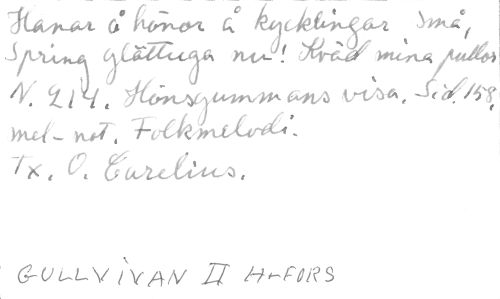 Hanar å hönor å kycklingar små,
Spring glättuga nu! Kväd mina pullor
N. 214. Hönsgummans visa. Sid. 158,
mel-not. Folkmelodi.
Tx. O. Carelius.
GULLVIVAN II H-FORS